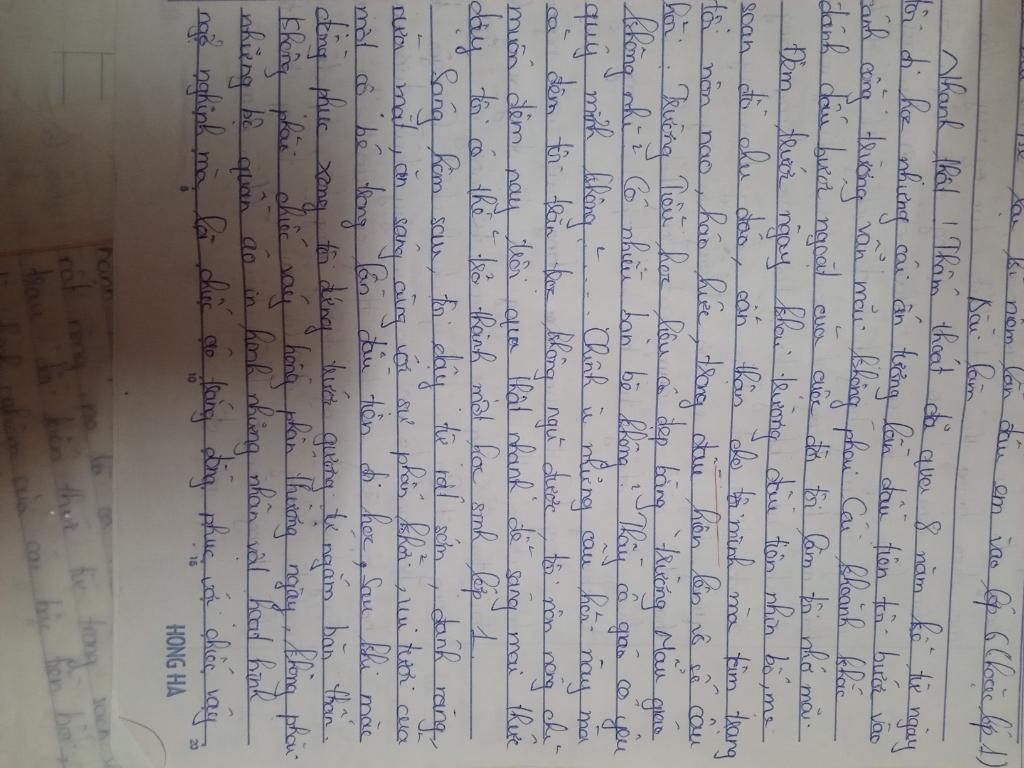 kỉ niệm lần đầu em vào lớp 6 (hoặc lớp 1)
Bài làm
Nhanh thật! Thấm thoắt đã qua 8 năm kể từ ngày
tôi đi học nhưng cái ấn tượng lần đầu tiên tôi bước vào
cánh cổng trường vẫn mãi không phai. Cái khoảnh khắc
đánh dấu bước ngoặt của cuộc đời tôi làm tôi nhớ mãi.
Đêm trước ngày khai trường đầu tiên nhìn bố, mẹ
soạn đồ chu đáo, cẩn thận do tôi mình mà tâm trạng
tôi nôn nao, háo hức, trong đầu hiện lên vô số câu
hỏi: Trường Tiểu học liệu có đẹp bằng trường Mẫu giáo
không nhỉ? Có nhiều bạn bè không? Thầy cô giáo có yêu
quý mình không?... Chính vì những câu hỏi này mà
cả đêm tôi trằn trọc không ngủ được, tôi nôn nóng chỉ
muốn đêm nay trôi qua thật nhanh để sáng mai thức
dậy tôi có thể trở thành một học sinh lớp 1.
Sáng hôm sau, tôi dậy từ rất sớm, đánh răng,
rửa mặt, ăn sáng cùng với sự phấn khởi, vui tươi của
một cô bé trong lần đầu tiên đi học. Sau khi mặc
đồng phục xong tôi đứng trước gương tự ngắm bản thân
Không phải chiếc váy bông phấn thường ngày, không phải
những bộ quần áo in hình những nhân vật hoạt hình
ngộ nghĩnh mà là chiếc áo trắng đồng phục với chiếc váy
5
10
15
20
HONG HA